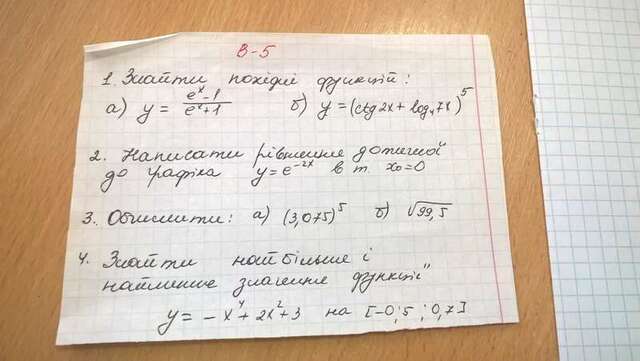 В-5
1. Знайти похідні функцій:
а) y = (e^x - 1)/(e^x + 1) б) y = (ctg 2x + log₄ 7x)⁵
2. Написати рівняння дотичної
до графіка y = e^(-2x) в т. x₀ = 0
3. Обчислити: а) (3,0075)⁵ б) √99,5
4. Знайти найбільше і
найменше значення функції
y = -x⁴ + 2x² + 3 на [-0,5; 0,7]